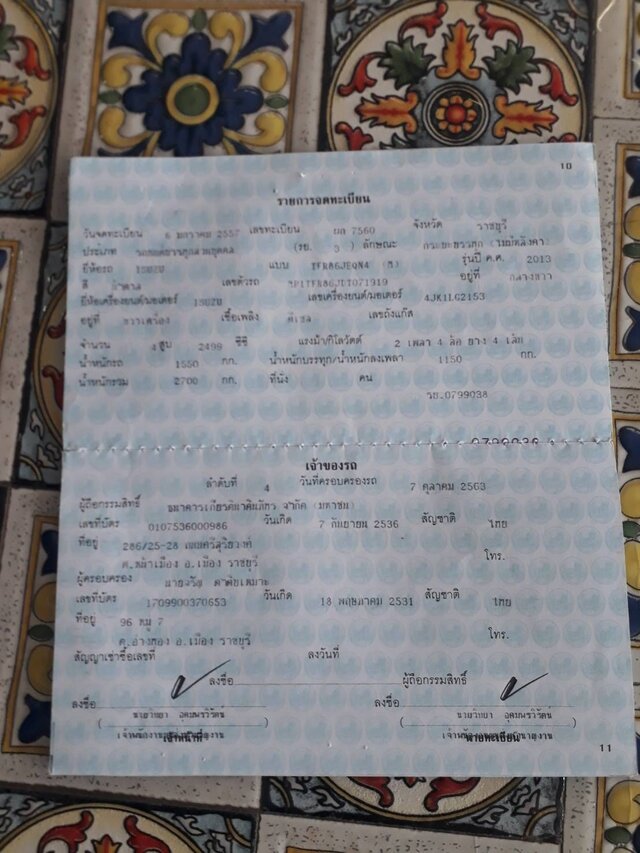 10
รายการจดทะเบียน
วันจดทะเบียน 6 มกราคม 2557 เลขทะเบียน 7560 จังหวัด ราชบุรี
ประเภท รถยนต์บรรทุกส่วนบุคคล (รย. 3) ลักษณะ กระบะบรรทุก (ไม่มีหลังคา)
ยี่ห้อรถ ISUZU แบบ รุ่นปี ค.ศ. 2013
สี เลขตัวรถ อยู่ที่ กลางขวา
ยี่ห้อเครื่องยนต์/มอเตอร์ ISUZU เลขเครื่องยนต์/มอเตอร์
อยู่ที่ ขวาเครื่อง เชื้อเพลิง ดีเซล เลขถังแก๊ส
จำนวน 4 สูบ 2499 ซีซี แรงม้า/กิโลวัตต์ 2 เพลา 4 ล้อ ยาง 4 เส้น
น้ำหนักรถ 1550 กก. น้ำหนักบรรทุก/น้ำหนักลงเพลา 1150 กก.
น้ำหนักรวม 2700 กก. ที่นั่ง คน
รย.0799038
0799038
เจ้าของรถ
ลำดับที่ 4 วันที่ครอบครองรถ 7 ตุลาคม 2563
ผู้ถือกรรมสิทธิ์ ธนาคารเกียรตินาคินภัทร จำกัด (มหาชน)
เลขที่บัตร 0107536000986 วันเกิด 7 กันยายน 2536 สัญชาติ ไทย
ที่อยู่ 286/25-28 ถนนศรีสุริยวงศ์
ต.หน้าเมือง อ.เมือง ราชบุรี โทร.
ผู้ครอบครอง
เลขที่บัตร 1709900370653 วันเกิด 18 พฤษภาคม 2531 สัญชาติ ไทย
ที่อยู่ 96 หมู่ 7
ต.อ่างทอง อ.เมือง ราชบุรี โทร.
สัญญาเช่าซื้อเลขที่ ลงวันที่
ลงชื่อ ผู้ถือกรรมสิทธิ์
ลงชื่อ ลงชื่อ
( นายวิทยา อุดมพรวิรัตน์ ) ( นายวิทยา อุดมพรวิรัตน์ )
เจ้าหน้าที่ นายทะเบียน
11